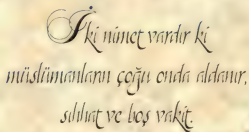 İki nimet vardır ki
müslümanların çoğu onda aldanır,
sıhhat ve boş vakit.